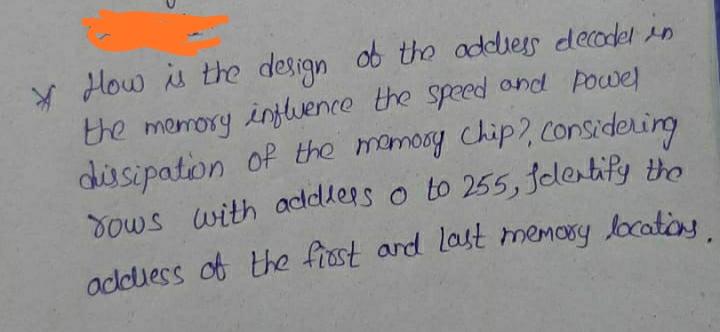 * How is the design of the address decoder in
the memory influence the speed and power
dissipation of the memory chip?, considering
rows with address 0 to 255, Identify the
address of the first and last memory locations.